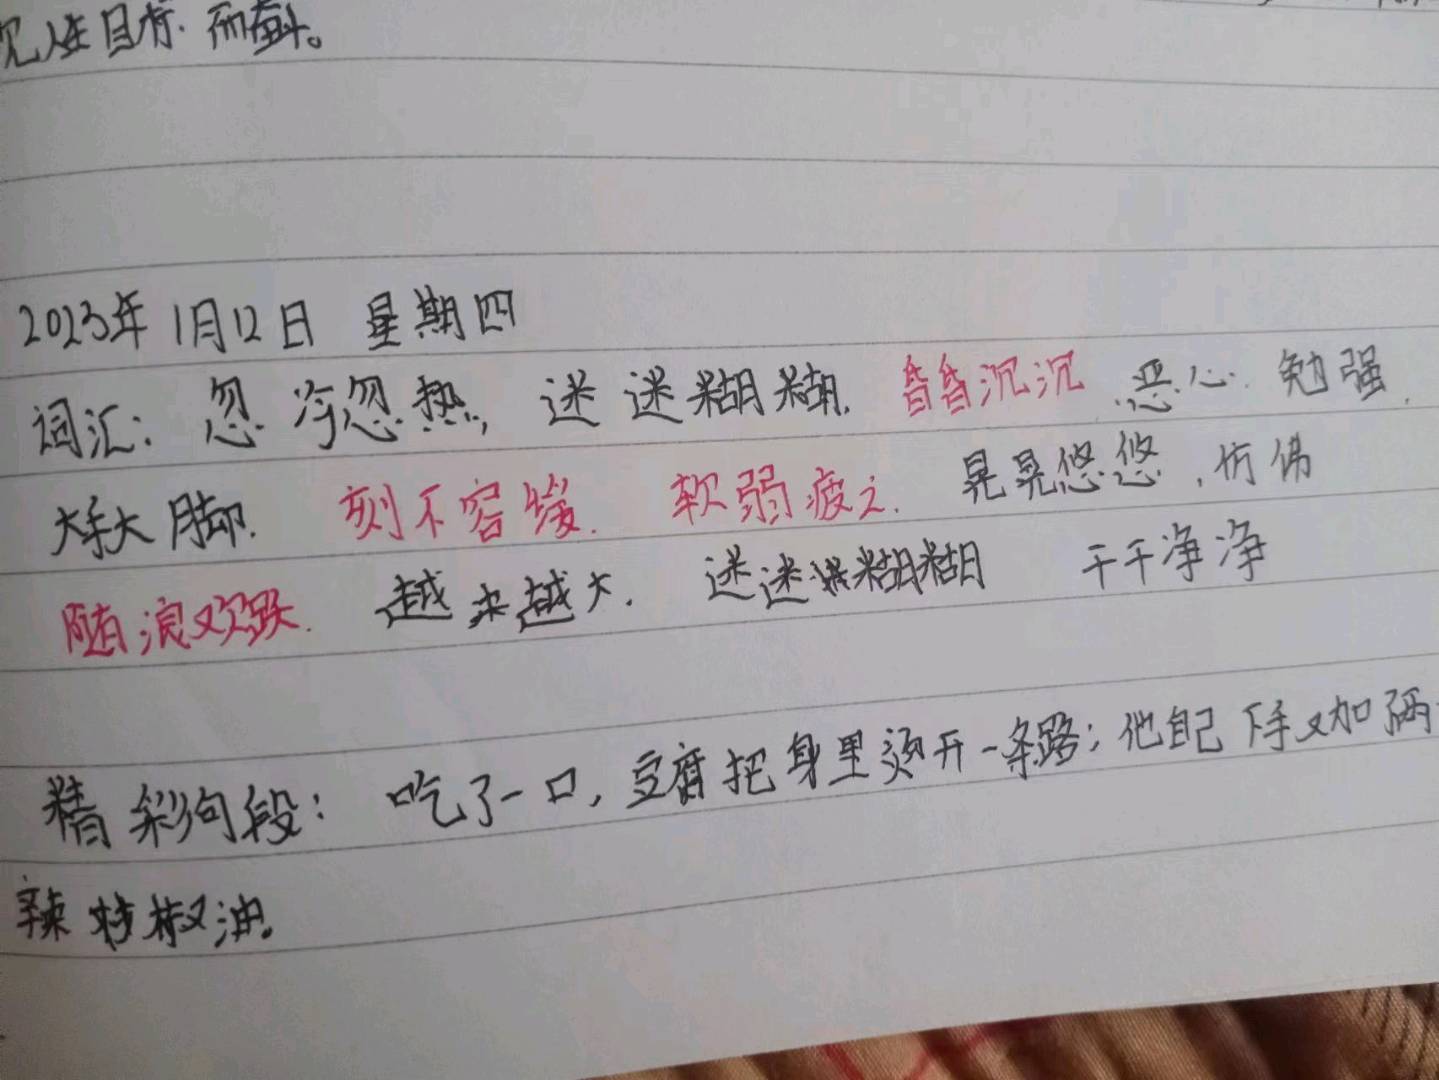 人生目标.而奋斗。
2023年1月12日 星期四
词汇：忽冷忽热，迷迷糊糊.昏昏沉沉.恶心.勉强.
大手大脚.刻不容缓.软弱疲乏.晃晃悠悠，仿佛
随浪欢跃.越来越大.迷迷糊糊 干干净净
精彩句段：吃了一口，豆腐把身里烫开一条路；他自己下手又加两
辣椒油。